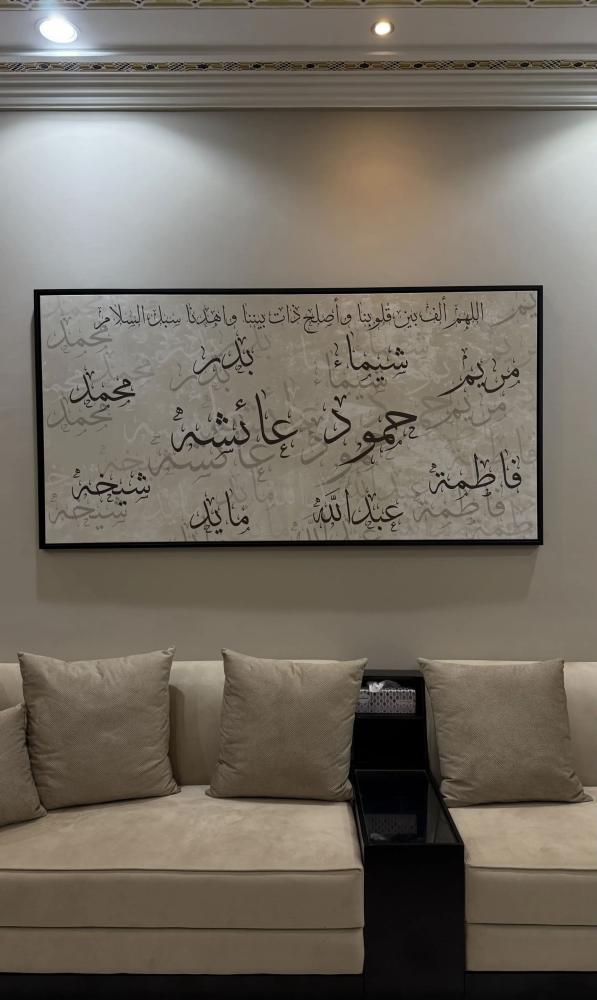 اللهم ألف بين قلوبنا وأصلح ذات بيننا واهدنا سبل السلام
مريم شيماء بدر محمد
حمود عائشه
فاطمة عبدالله مايد شيخه